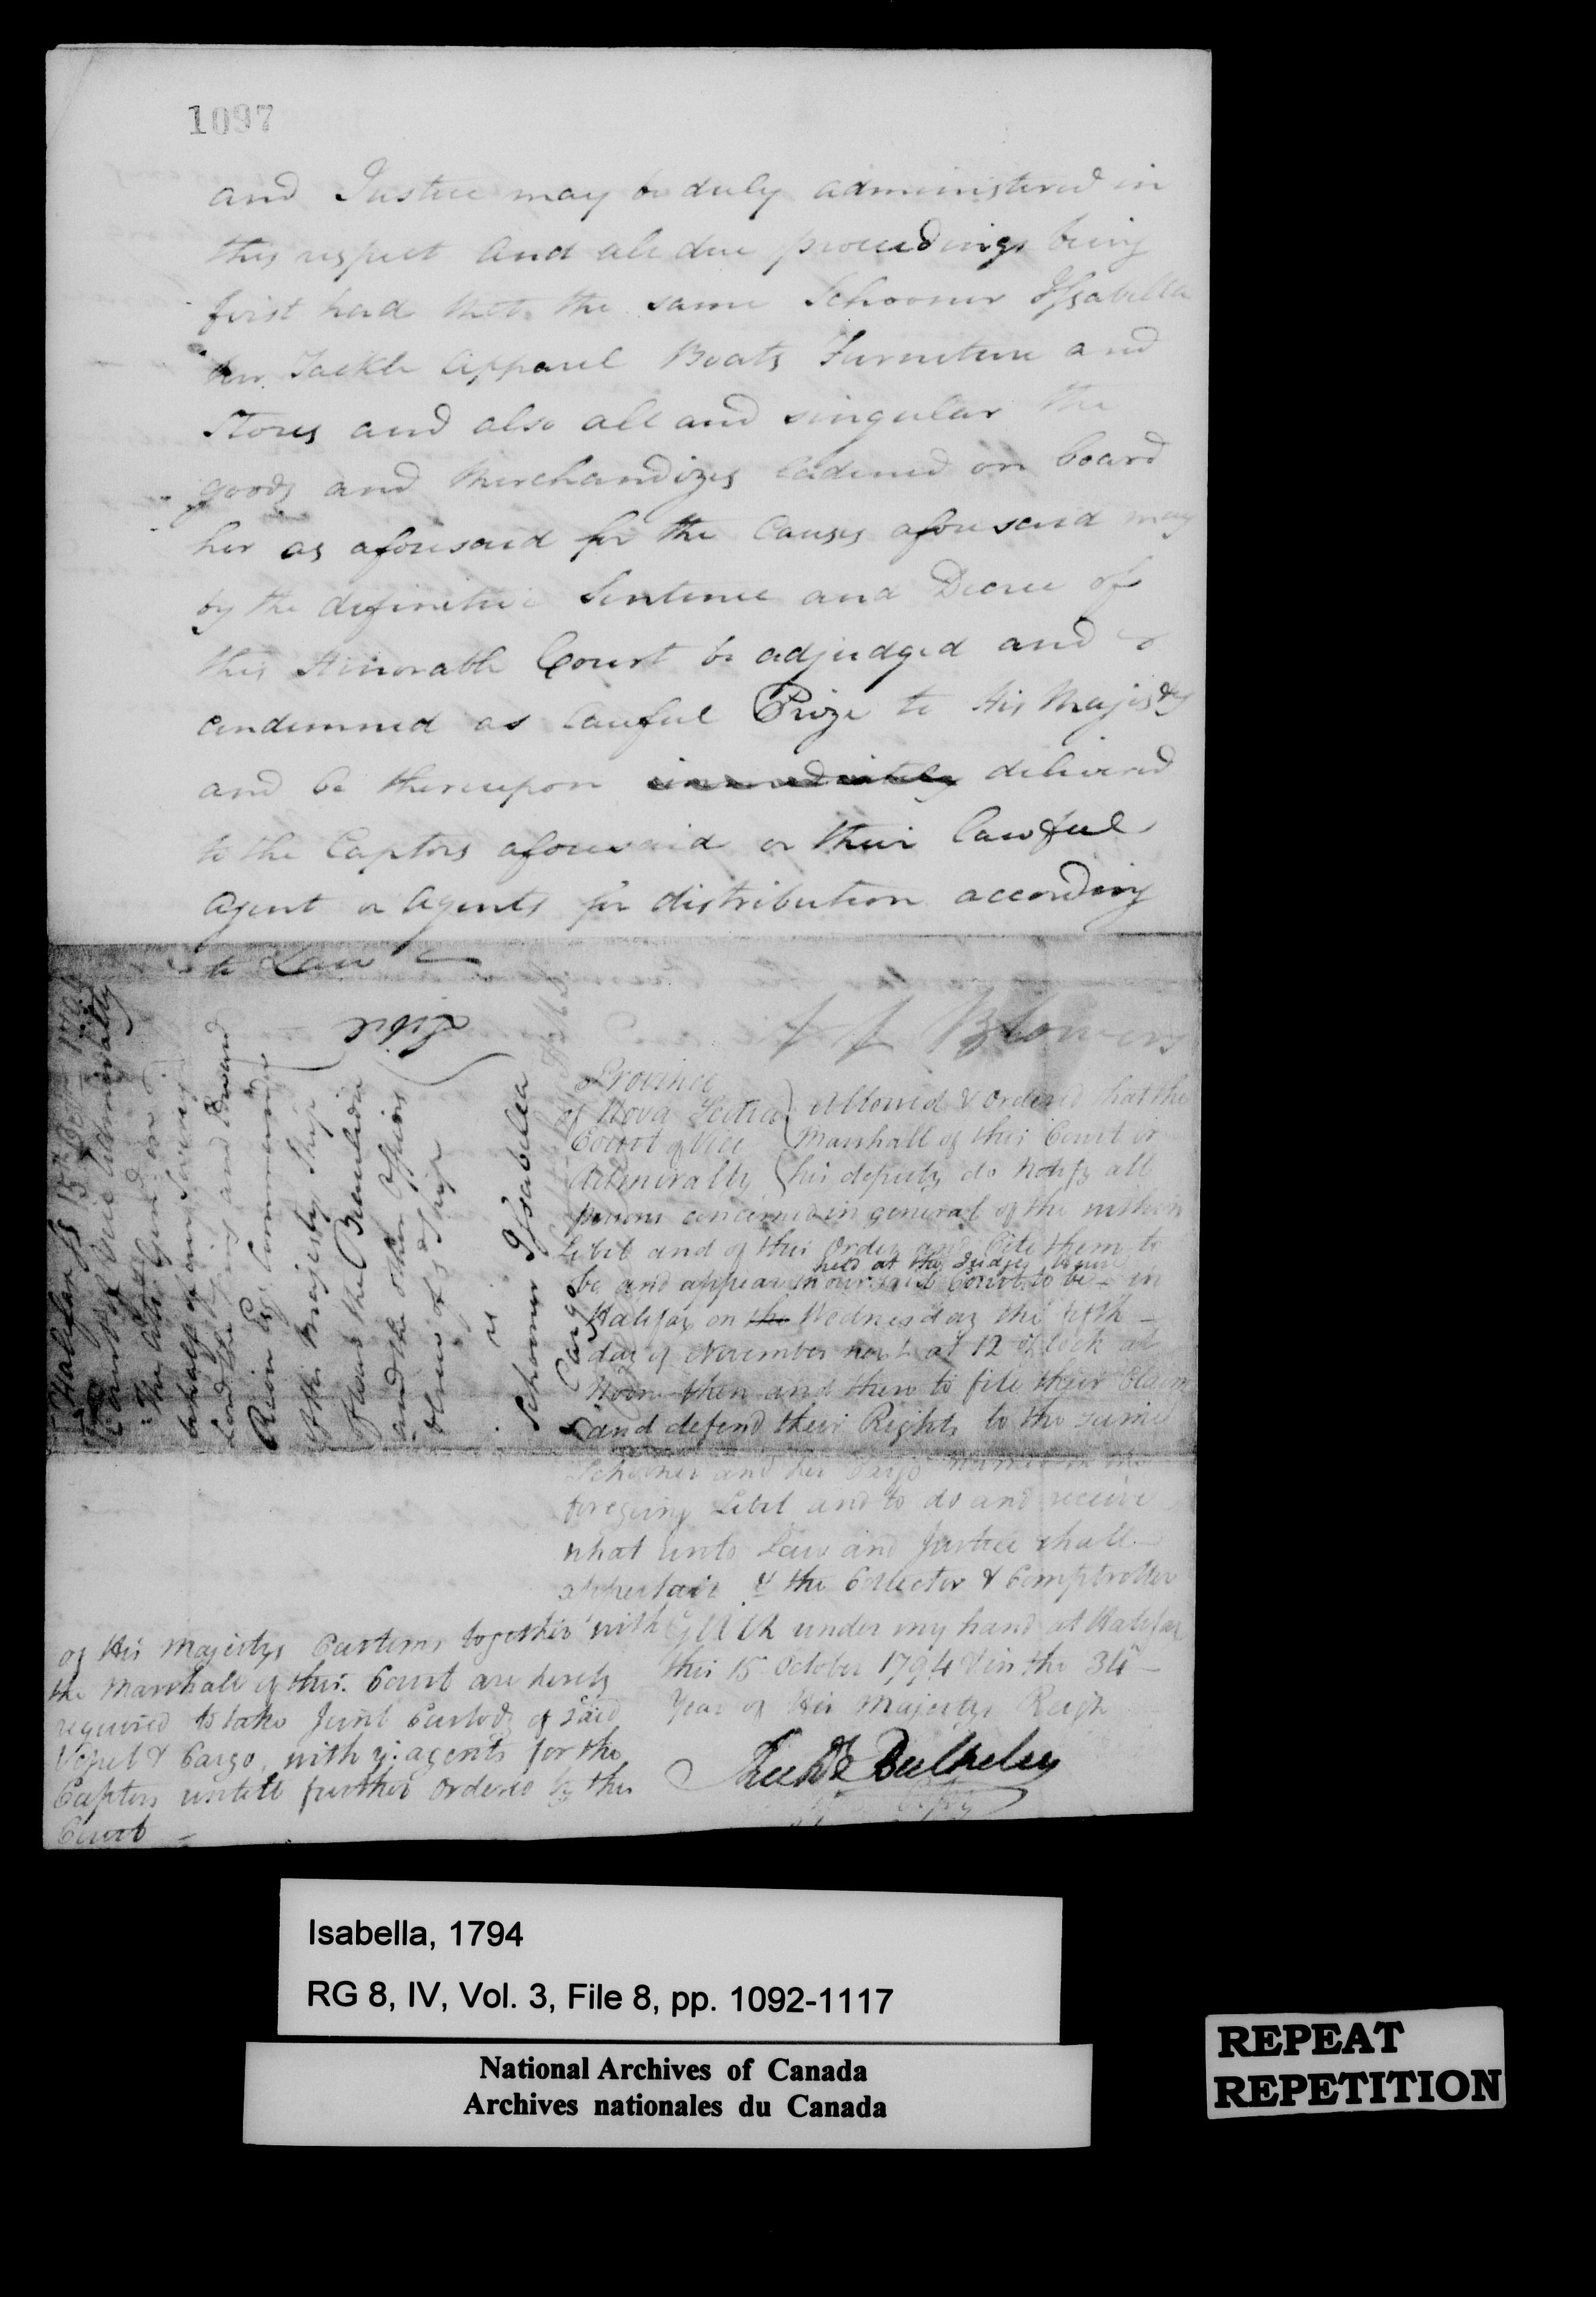 1097
and Justice may be duly administered in
this respect and all due proceedings being
first had that the same Schooner Issabella
her Tackle Apparel Boats Furniture and
Stores and also all and singular the
goods and Merchandizes ladened on board
her as aforesaid for the Causes aforesaid may
by the definitive Sentence and Decree of
this Honorable Court be adjudged and
condemned as lawful Prize to His Majesty
and be thereupon immediately delivered
to the Captors aforesaid or their lawful
agent or agents for distribution according
to Law
Blowers
Province
of Nova Scotia
Court of Vice
Admiralty
Allowed & Ordered that the
Marshall of this Court or
his deputy do notify all
persons concerned in general of the within
Libel and of this Order and Cite them to
be and appear in our said Court to be held at the Judges house in
Halifax on the Wednesday the fifth
day of November next at 12 oClock at
Noon then and there to file their Claim
and defend their Rights to the same
Schooner and her Cargo named in the
foregoing Libel and to do and receive
what unto Law and Justice shall
appertain & the Collector & Comptroller
of His Majestys Customs together with
the Marshall of this Court are hereby
required to take Joint Custody of said
Vessel & Cargo, with ye agents for the
Captors untill further Ordered by this
Court
Given under my hand at Halifax
this 15 October 1794 & in the 34th
Year of His Majestys Reign
Bulkeley
Halifax 15 1794
Court of Vice Admiralty
The
behalf of our Sovereign
Lord the King and Edward
Esq Commander
of His Majestys Ship
and the other Officers
& Crew of sd Ship
vs
Schooner Issabella
& Cargo
Libel
Isabella, 1794
RG 8, IV, Vol. 3, File 8, pp. 1092-1117
National Archives of Canada
Archives nationales du Canada
REPEAT
REPETITION